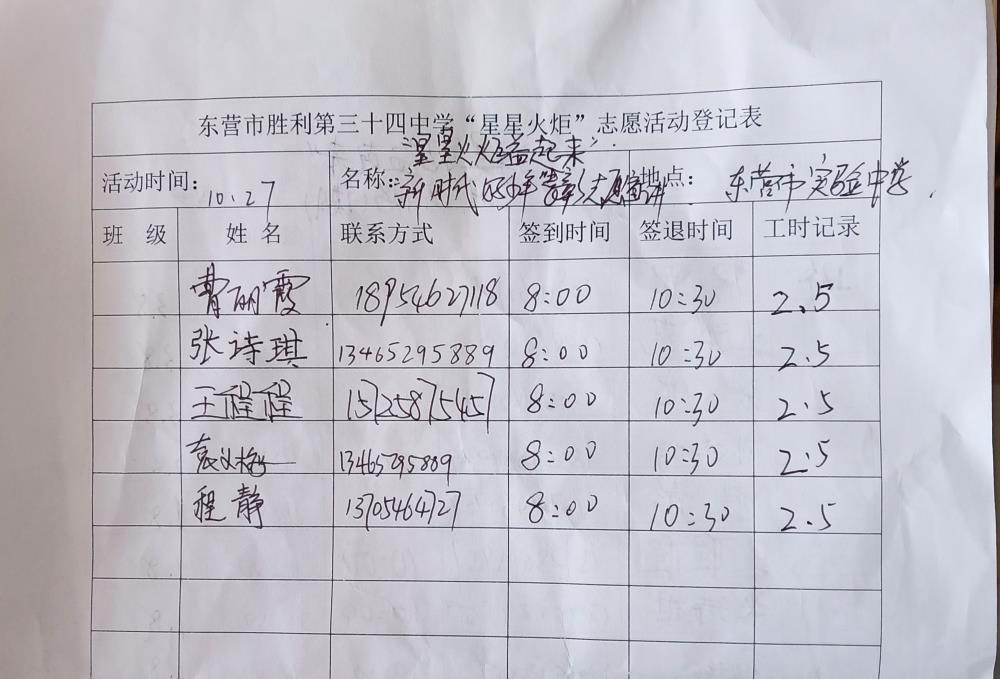 东营市胜利第三十四中学“星星火炬”志愿活动登记表
活动时间: 10.27 名称: “星星火炬益起来” 新时代好少年 志愿宣讲 地点: 东营市实验中学.
班 级 姓 名 联系方式 签到时间 签退时间 工时记录
曹丽霞 18954627118 8:00 10:30 2.5
张诗琪 13465295889 8:00 10:30 2.5
王程程 15725875457 8:00 10:30 2.5
袁义梅 13465295889 8:00 10:30 2.5
程静 13705464727 8:00 10:30 2.5